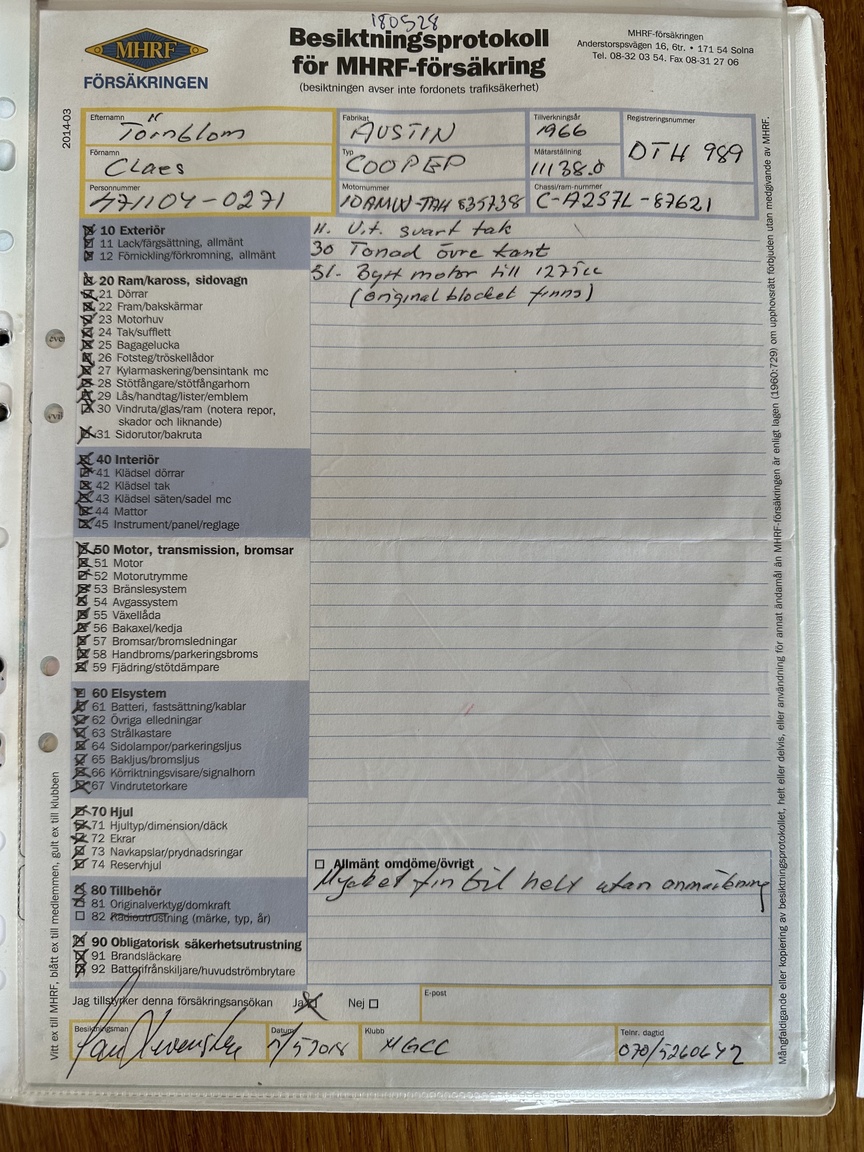 180528
MHRF
FÖRSÄKRINGEN
Besiktningsprotokoll
för MHRF-försäkring
(besiktningen avser inte fordonets trafiksäkerhet)
MHRF-försäkringen
Anderstorpsvägen 16, 6tr. • 171 54 Solna
Tel. 08-32 03 54. Fax 08-31 27 06
2014-03
Efternamn
Törnblom
Förnamn
Claes
Personnummer
471104-0271
Fabrikat
AUSTIN
Typ
COOPER
Motornummer
10AMW-TAH 835738
Tillverkningsår
1966
Mätarställning
11138.0
Chassi/ram-nummer
C-A2S7L-87621
Registreringsnummer
DTH 989
10 Exteriör
11 Lack/färgsättning, allmänt
12 Förnickling/förkromning, allmänt
20 Ram/kaross, sidovagn
21 Dörrar
22 Fram/bakskärmar
23 Motorhuv
24 Tak/sufflett
25 Bagagelucka
26 Fotsteg/tröskellådor
27 Kylarmaskering/bensintank mc
28 Stötfångare/stötfångarhorn
29 Lås/handtag/lister/emblem
30 Vindruta/glas/ram (notera repor,
skador och liknande)
31 Sidorutor/bakruta
40 Interiör
41 Klädsel dörrar
42 Klädsel tak
43 Klädsel säten/sadel mc
44 Mattor
45 Instrument/panel/reglage
50 Motor, transmission, bromsar
51 Motor
52 Motorutrymme
53 Bränslesystem
54 Avgassystem
55 Växellåda
56 Bakaxel/kedja
57 Bromsar/bromsledningar
58 Handbroms/parkeringsbroms
59 Fjädring/stötdämpare
60 Elsystem
61 Batteri, fastsättning/kablar
62 Övriga elledningar
63 Strålkastare
64 Sidolampor/parkeringsljus
65 Bakljus/bromsljus
66 Körriktningsvisare/signalhorn
67 Vindrutetorkare
70 Hjul
71 Hjultyp/dimension/däck
72 Ekrar
73 Navkapslar/prydnadsringar
74 Reservhjul
80 Tillbehör
81 Originalverktyg/domkraft
82 Radioutrustning (märke, typ, år)
90 Obligatorisk säkerhetsutrustning
91 Brandsläckare
92 Batterifrånskiljare/huvudströmbrytare
11. V.t. svart tak
30 Tonad övre kant
51. Bytt motor till 1275cc
(original blocket finns)
Allmänt omdöme/övrigt
Mycket fin bil helt utan anmärkning
Jag tillstyrker denna försäkringsansökan Ja Nej
E-post
Besiktningsman
Datum
Klubb
MGCC
Telnr. dagtid
070/5260642
Vitt ex till MHRF, blått ex till medlemmen, gult ex till klubben
Mångfaldigande eller kopiering av besiktningsprotokollet, helt eller delvis, eller användning för annat ändamål än MHRF-försäkringen är enligt lagen (1960:729) om upphovsrätt förbjuden utan medgivande av MHRF.